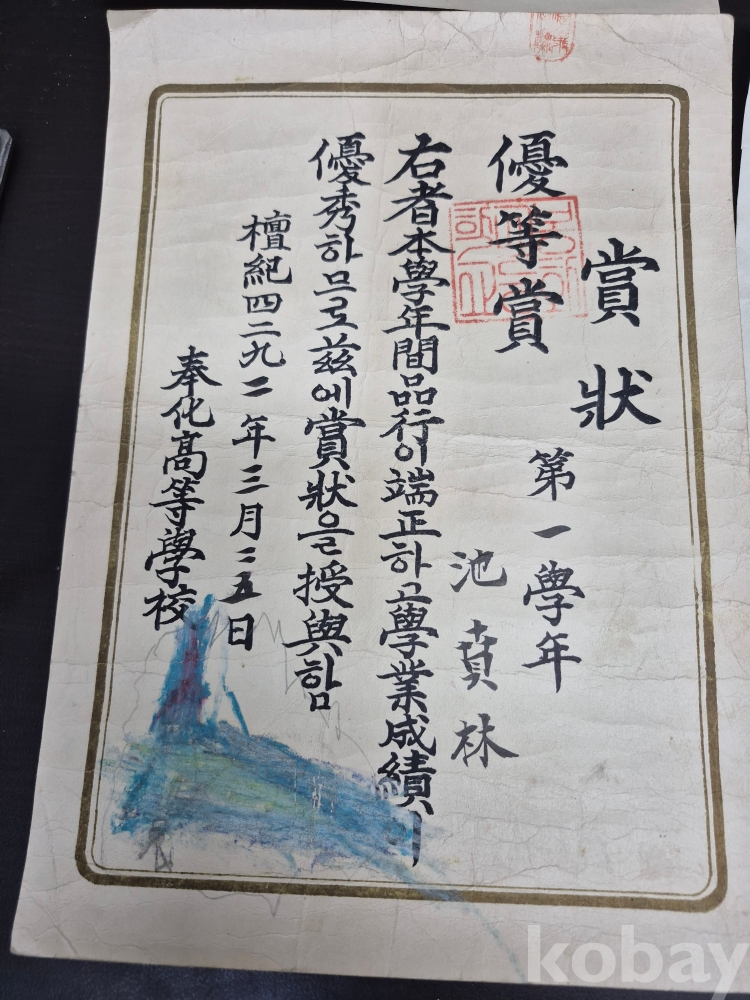 賞狀
第一學年
優等賞
池賁林
右者本學年間品行이端正하고學業成績이
優秀하므로玆에賞狀을授與함
檀紀四二九二年三月二五日
奉化高等學校
kobay